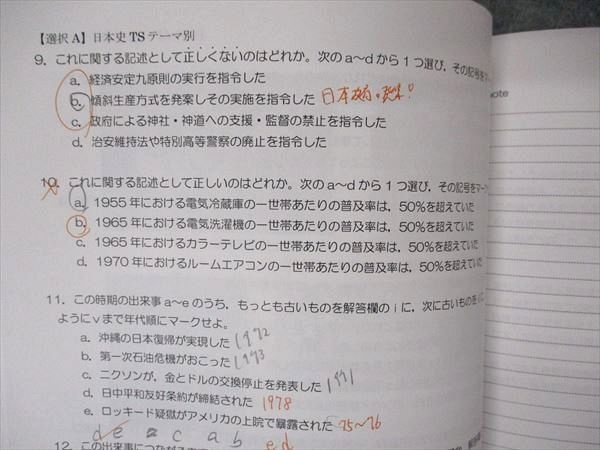 【選択 A】日本史 TS テーマ別
9. これに関する記述として正しくないのはどれか。次の a~d から 1 つ選び，その記号をマー
a. 経済安定九原則の実行を指令した
b. 傾斜生産方式を発案しその実施を指令した 日本政府の発案!
c. 政府による神社・神道への支援・監督の禁止を指令した
d. 治安維持法や特別高等警察の廃止を指令した
10. これに関する記述として正しいのはどれか。次の a~d から 1 つ選び，その記号をマーク
a. 1955 年における電気冷蔵庫の一世帯あたりの普及率は，50%を超えていた
b. 1965 年における電気洗濯機の一世帯あたりの普及率は，50%を超えていた
c. 1965 年におけるカラーテレビの一世帯あたりの普及率は，50%を超えていた
d. 1970 年におけるルームエアコンの一世帯あたりの普及率は，50%を超えて
11. この時期の出来事 a~e のうち，もっとも古いものを解答欄の i に，次に古いものを
ように v まで年代順にマークせよ。
a. 沖縄の日本復帰が実現した 1972
b. 第一次石油危機がおこった 1973
c. ニクソンが，金とドルの交換停止を発表した 1971
d. 日中平和友好条約が締結された 1978
e. ロッキード疑獄がアメリカの上院で暴露された 75~76
d e a c a b e d
12. この出来事に
note